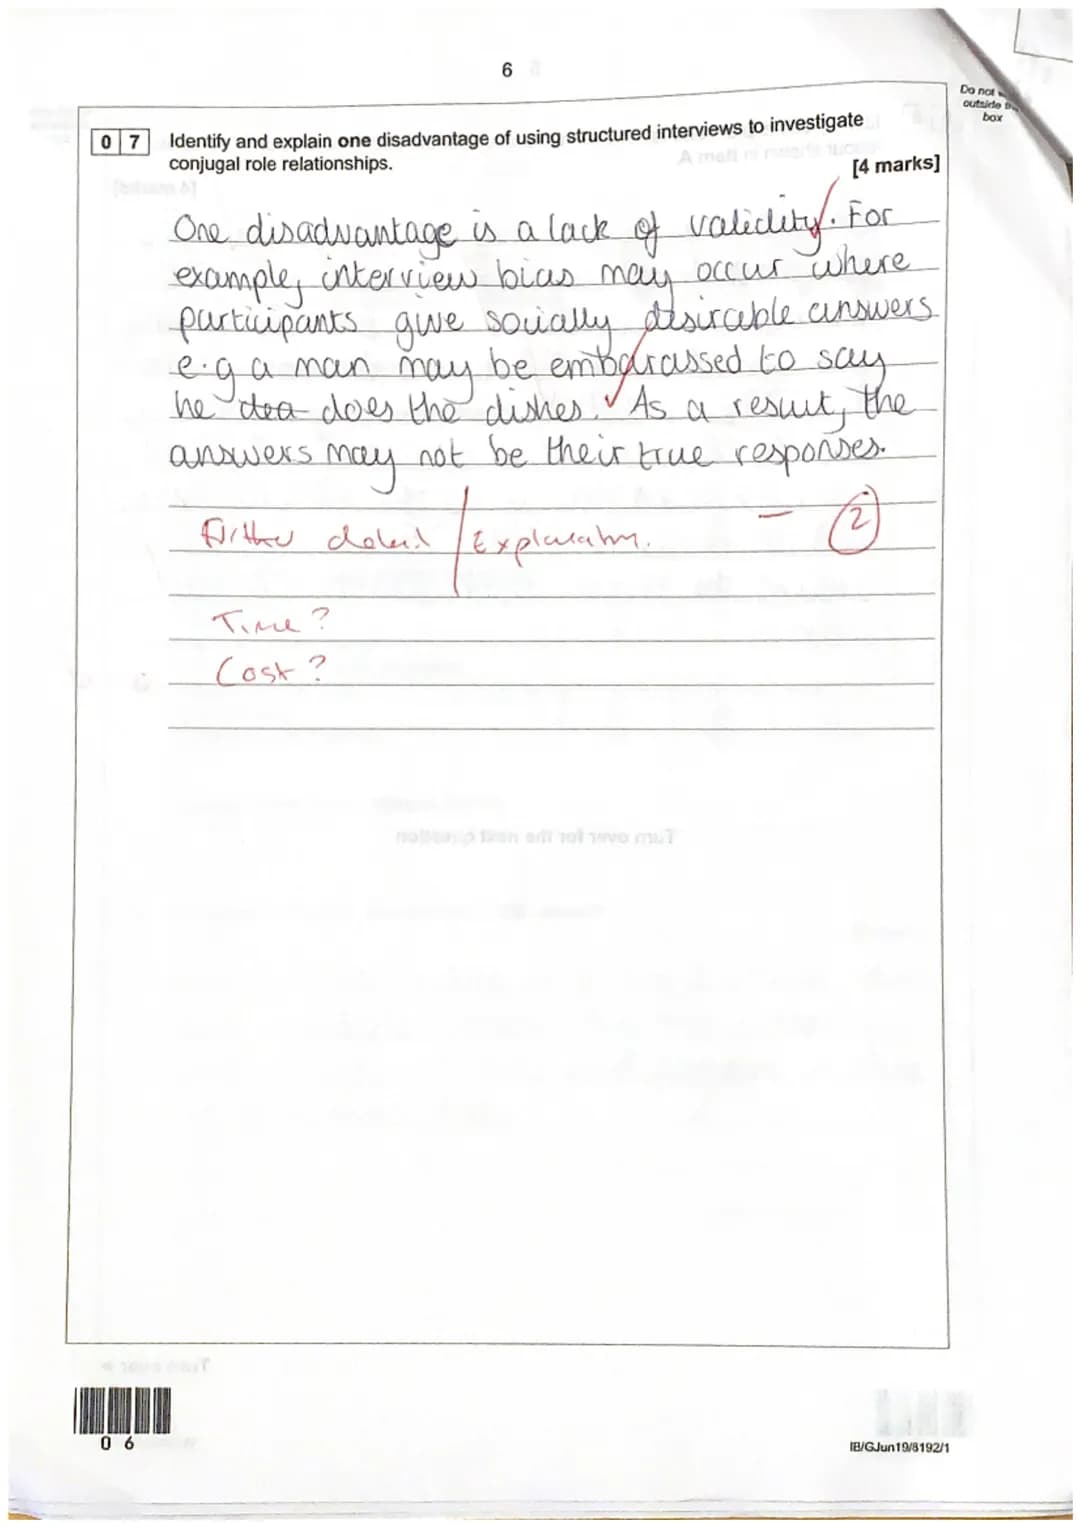 6
Do not
outside
box
0 7 Identify and explain one disadvantage of using structured interviews to investigate
conjugal role relationships.
[4 marks]
One disadvantage is a lack of validity. For
example, interview bias may occur where
participants give socially desirable answers
e.g a man may be embarassed to say
he does the dishes. As a result, the
answers may not be their true responses.
detail / Explanation. - 2
Time?
Cost?
Turn over for the next question
0 6
IB/G/Jun19/8192/1